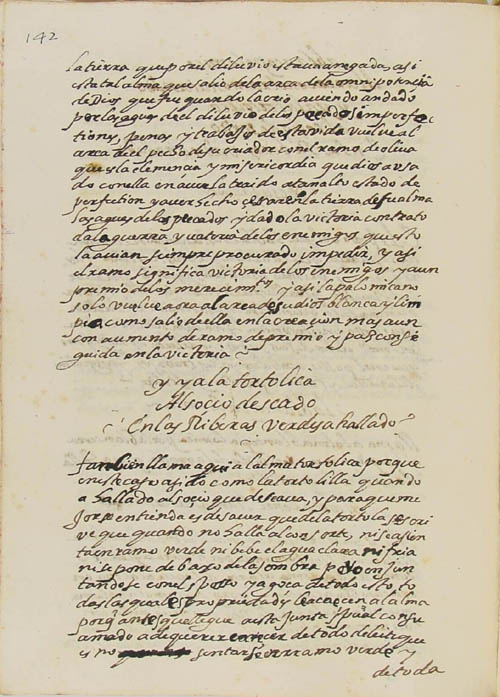 142
la tierra que por el diluvio estava anegada, asi
esta tal alma que salio de la arca de la omnipotencia
de Dios que fue quando la crio aviendo andado
por las aguas de el diluvio de los pecados imperfec
tiones, penas y trabajos de esta vida vuelve al
arca de el pecho de su criador con el ramo de oliva
que es la clemencia y misericordia que dios a usa
do con ella en averla traido a tan alto estado de
perfection y aver hecho cesar en la tierra de su alma
las aguas de los pecados y dadola victoria contra to
da la guerra y vateria de los enemigos que esto
la avian siempre procurado impedir, y asi
el ramo significa victoria de los enemigos y aun
premio de los merecimtos y asi la palomica no
solo vuelve aora al arca de su dios blanca y lim
pia como salio de ella en la creacion mas aun
con aumento de ramo de premio y paz conse
guida en la victoria
y ya la tortolica
Al socio deseado
En las Riberas verdes a hallado
tambien llama aqui a la alma tortolica porque
en este caso a sido como la tortolilla quando
a hallado al socio que deseava, y para que me
jor se entienda es de saver que de la tortola se escri
ve que quando no halla al consorte, ni se asien
ta en ramo verde ni bebe el agua clara ni fria
ni se pone debaxo de la sombra pero en jun
tandose con el sposo ya goça de todo esto to
das las quales propriedades le acaecen a la alma
porque antes que llegue a esta junta spual con su
amado a de querer carecer de todo deleite que
es no sentarse en ramo verde y
de toda